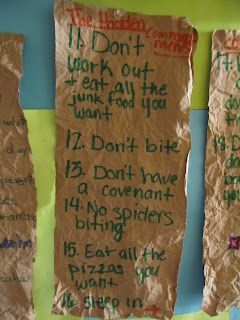 The
11. Don't
work out
+ eat all the
junk food you
want
12. Don't bite
13. Don't have
a covenant
14. No spiders
biting
15. Eat all the
pizzas you
want
16. sleep in
17.
18. D